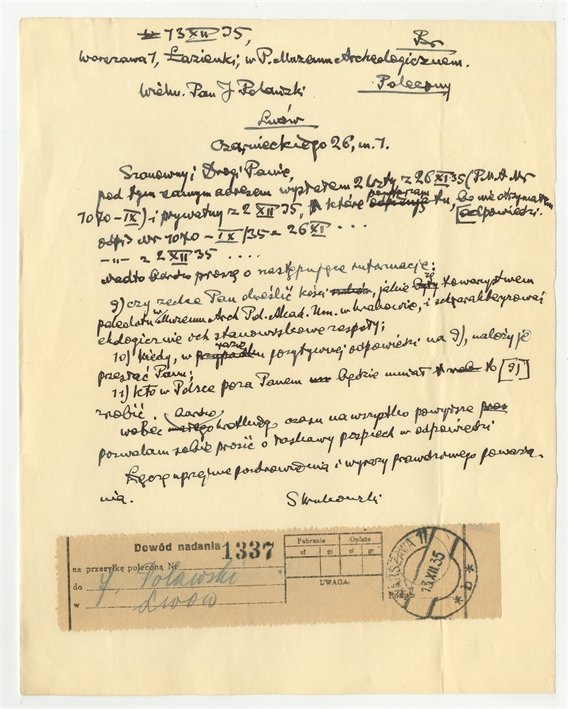 13 XII 35,
Br
Warszawa 1, Łazienki, w P. Muzeum Archeologicznem.
Polecony
Wielm. Pan J Polawski
Lwów
Czarnieckiego 26, m. 1.
Szanowny i Drogi Panie,
pod tym samym adresem wysłałem 2 listy z 26 XI 35 (P.M.A. Nr
1070 - IX) i prywatny z 2 XII 35, które powtarzam tu, bo nie otrzymałem
odpowiedzi.
odpis Nr 1070 - IX/35 z 26 XI ...
-"- z 2 XII 35 ....
Nadto bardzo proszę o następujące informacje:
9) czy zechce Pan określić kości, jakie są Towarzystwem
w Muzeum Arch Pol. Akad. Um. w Krakowie, i scharakteryzować
ekologicznie och stanowiskowe zespoły;
10) kiedy, w razie pozytywnej odpowiedzi na 9), należy je
przesłać Panu;
11) kto w Polsce poza Panem będzie umiał to [9)]
zrobić.
wobec bardzo krótkiego czasu na wszystko powyższe
pozwalam sobie prosić o łaskawy pośpiech w odpowiedzi
Łączę uprzejme pozdrowienia i wyrazy prawdziwego poważa-
nia.
S Krukowski
Dowód nadania 1337
na przesyłkę poleconą Nr
do J. Polawski
w Lwów
Pobranie Opłata
zł gr zł gr
UWAGA:
WARSZAWA 11
13.XII.35
* a *